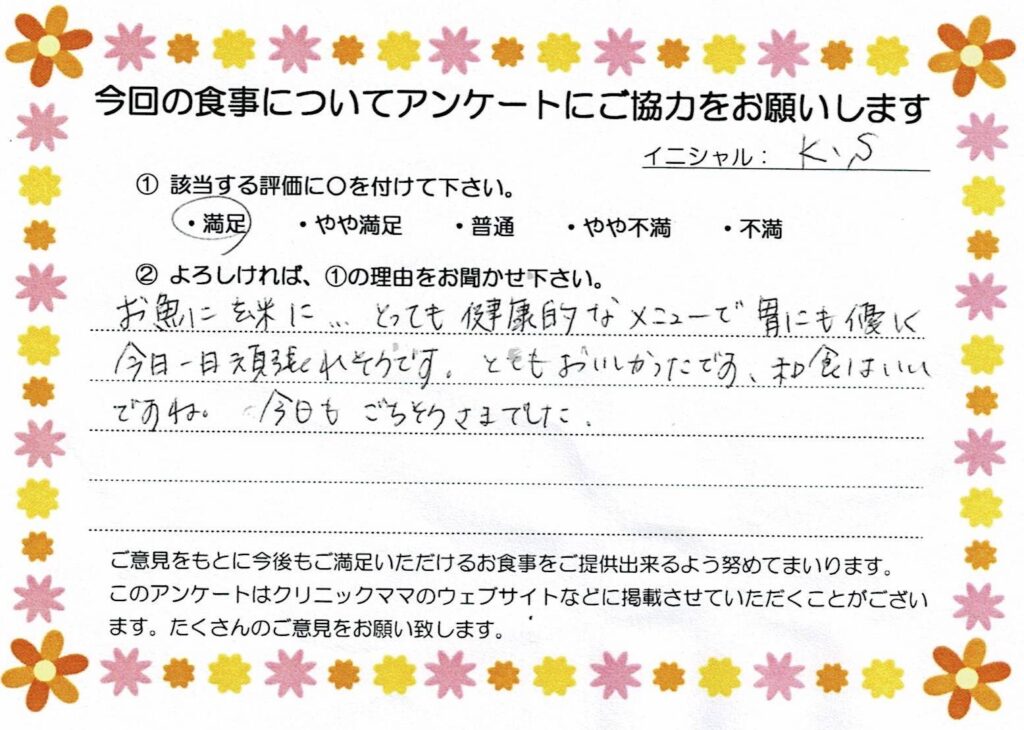 今回の食事についてアンケートにご協力をお願いします
イニシャル： K.S
① 該当する評価に〇を付けて下さい。
・満足 ・やや満足 ・普通 ・やや不満 ・不満
② よろしければ、①の理由をお聞かせ下さい。
お魚に玄米に… とっても健康的なメニューで胃にも優しく
今日一日頑張れそうです。とてもおいしかったです、和食はいい
ですね。今日もごちそうさまでした.
ご意見をもとに今後もご満足いただけるお食事をご提供出来るよう努めてまいります。
このアンケートはクリニックママのウェブサイトなどに掲載させていただくことがござい
ます。たくさんのご意見をお願い致します。